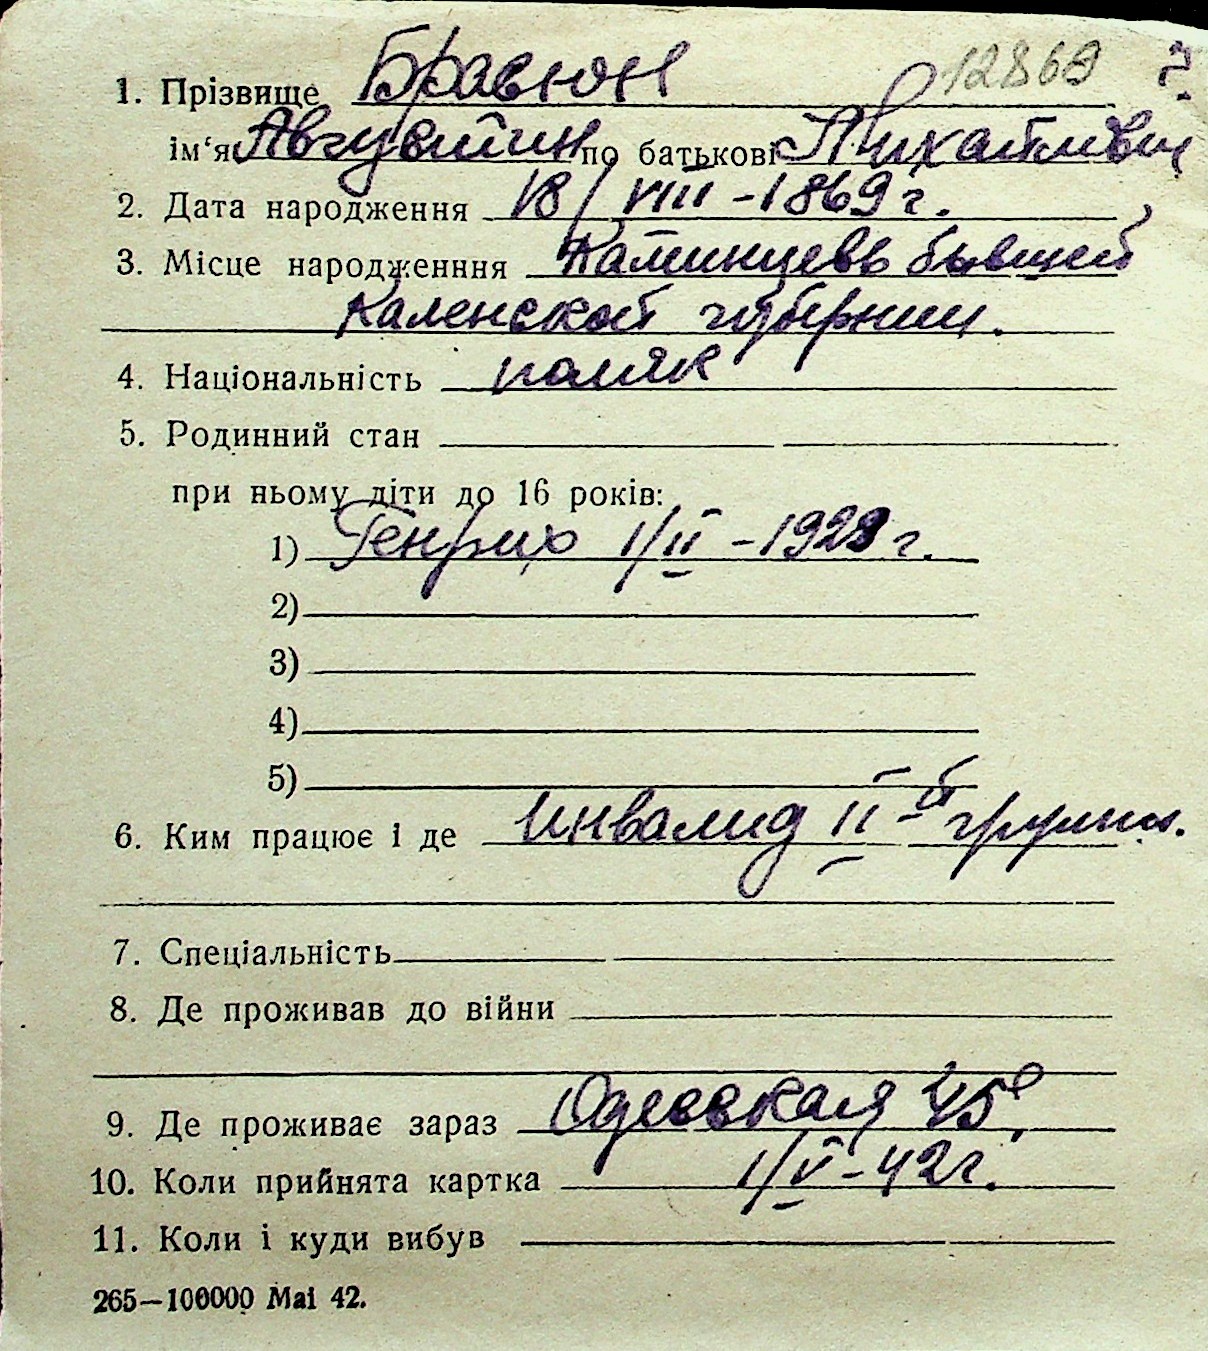 12869 7.
1. Прізвище Бравюн
ім‘я Августин по батькові Михайлович
2. Дата народження 18/VIII -1869 г.
3. Місце народженння бывшей
губернии.
4. Національність поляк
5. Родинний стан
при ньому діти до 16 років:
1) Генрих 1/II -1929 г.
2)
3)
4)
5)
6. Ким працює і де Инвалид II-й группы.
7. Спеціальність
8. Де проживав до війни
9. Де проживає зараз Одесская 45
10. Коли прийнята картка 1/V-42г.
11. Коли і куди вибув
265—100000 Mai 42.